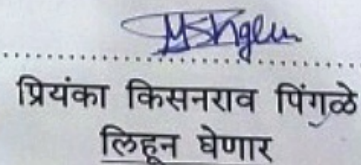 प्रियंका किसनराव पिंगळे
लिहून घेणार